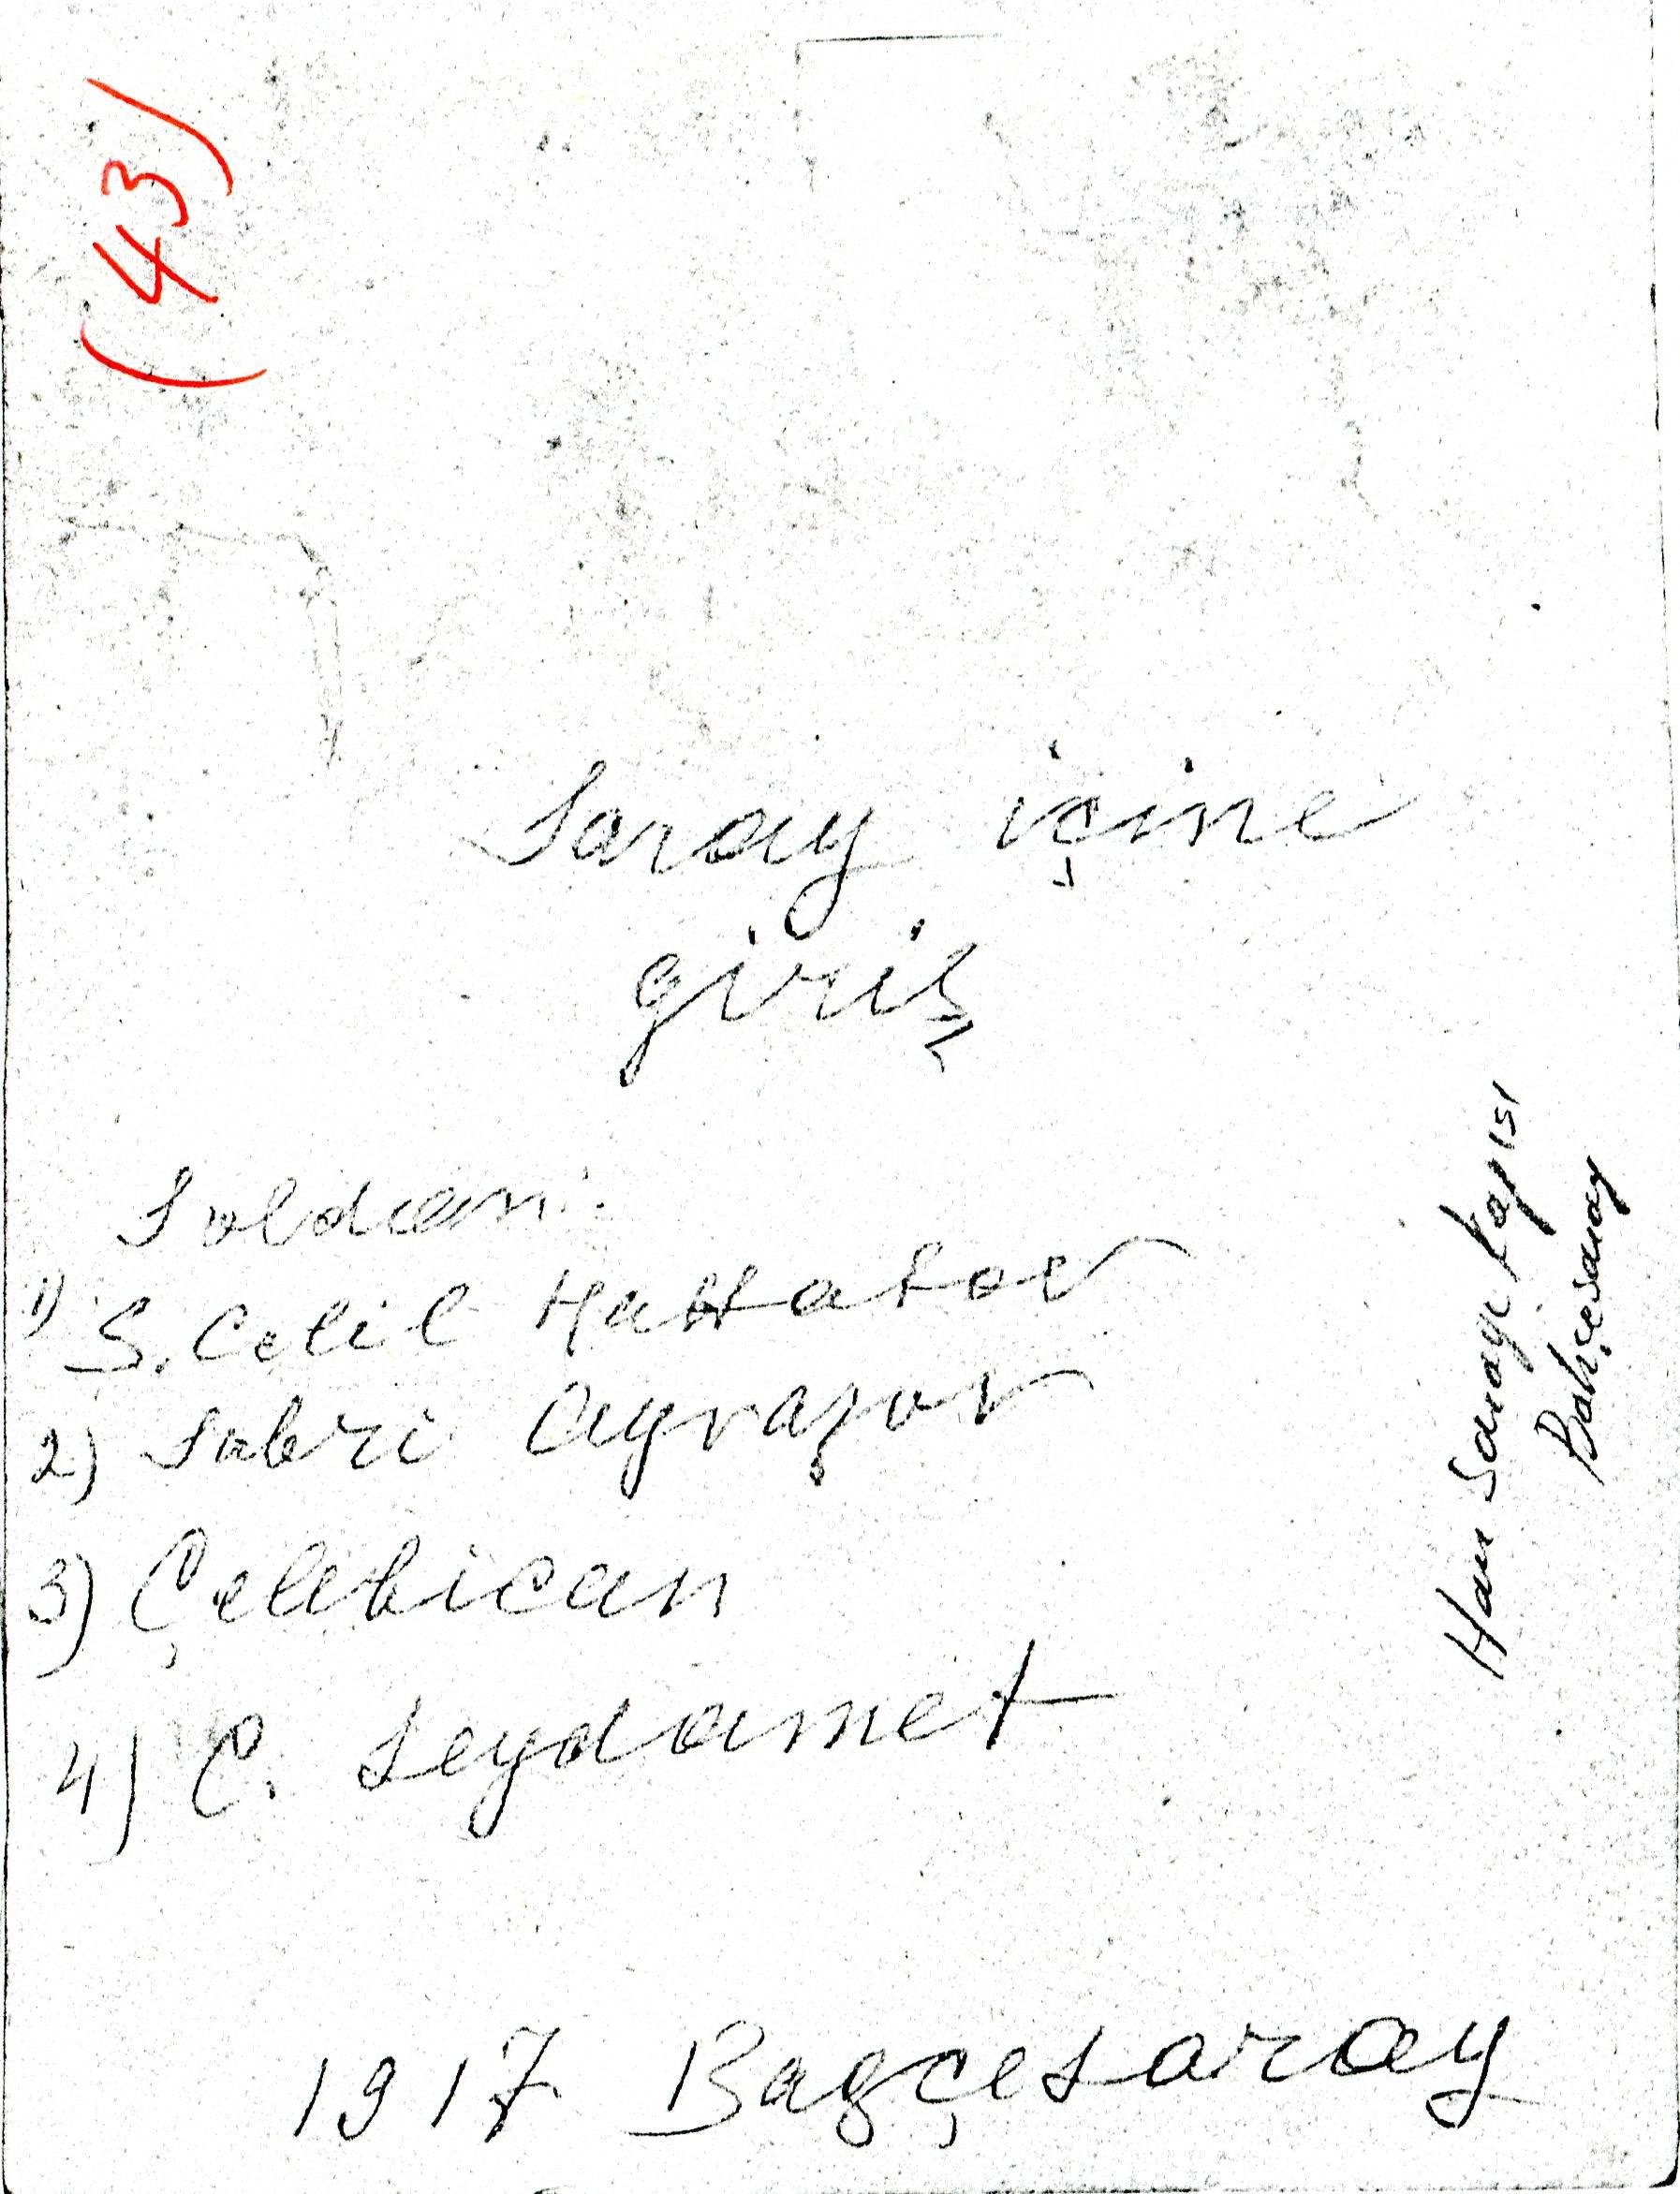 (43)
Saray içine
giriş
Soldan:
1) S. Celil Hattatov
2) Sabri Ayvazov
3) Çelebican
4) C. Seydamet
Han Sarayı Kapısı
Bahçesaray
1917 Bagçesaray